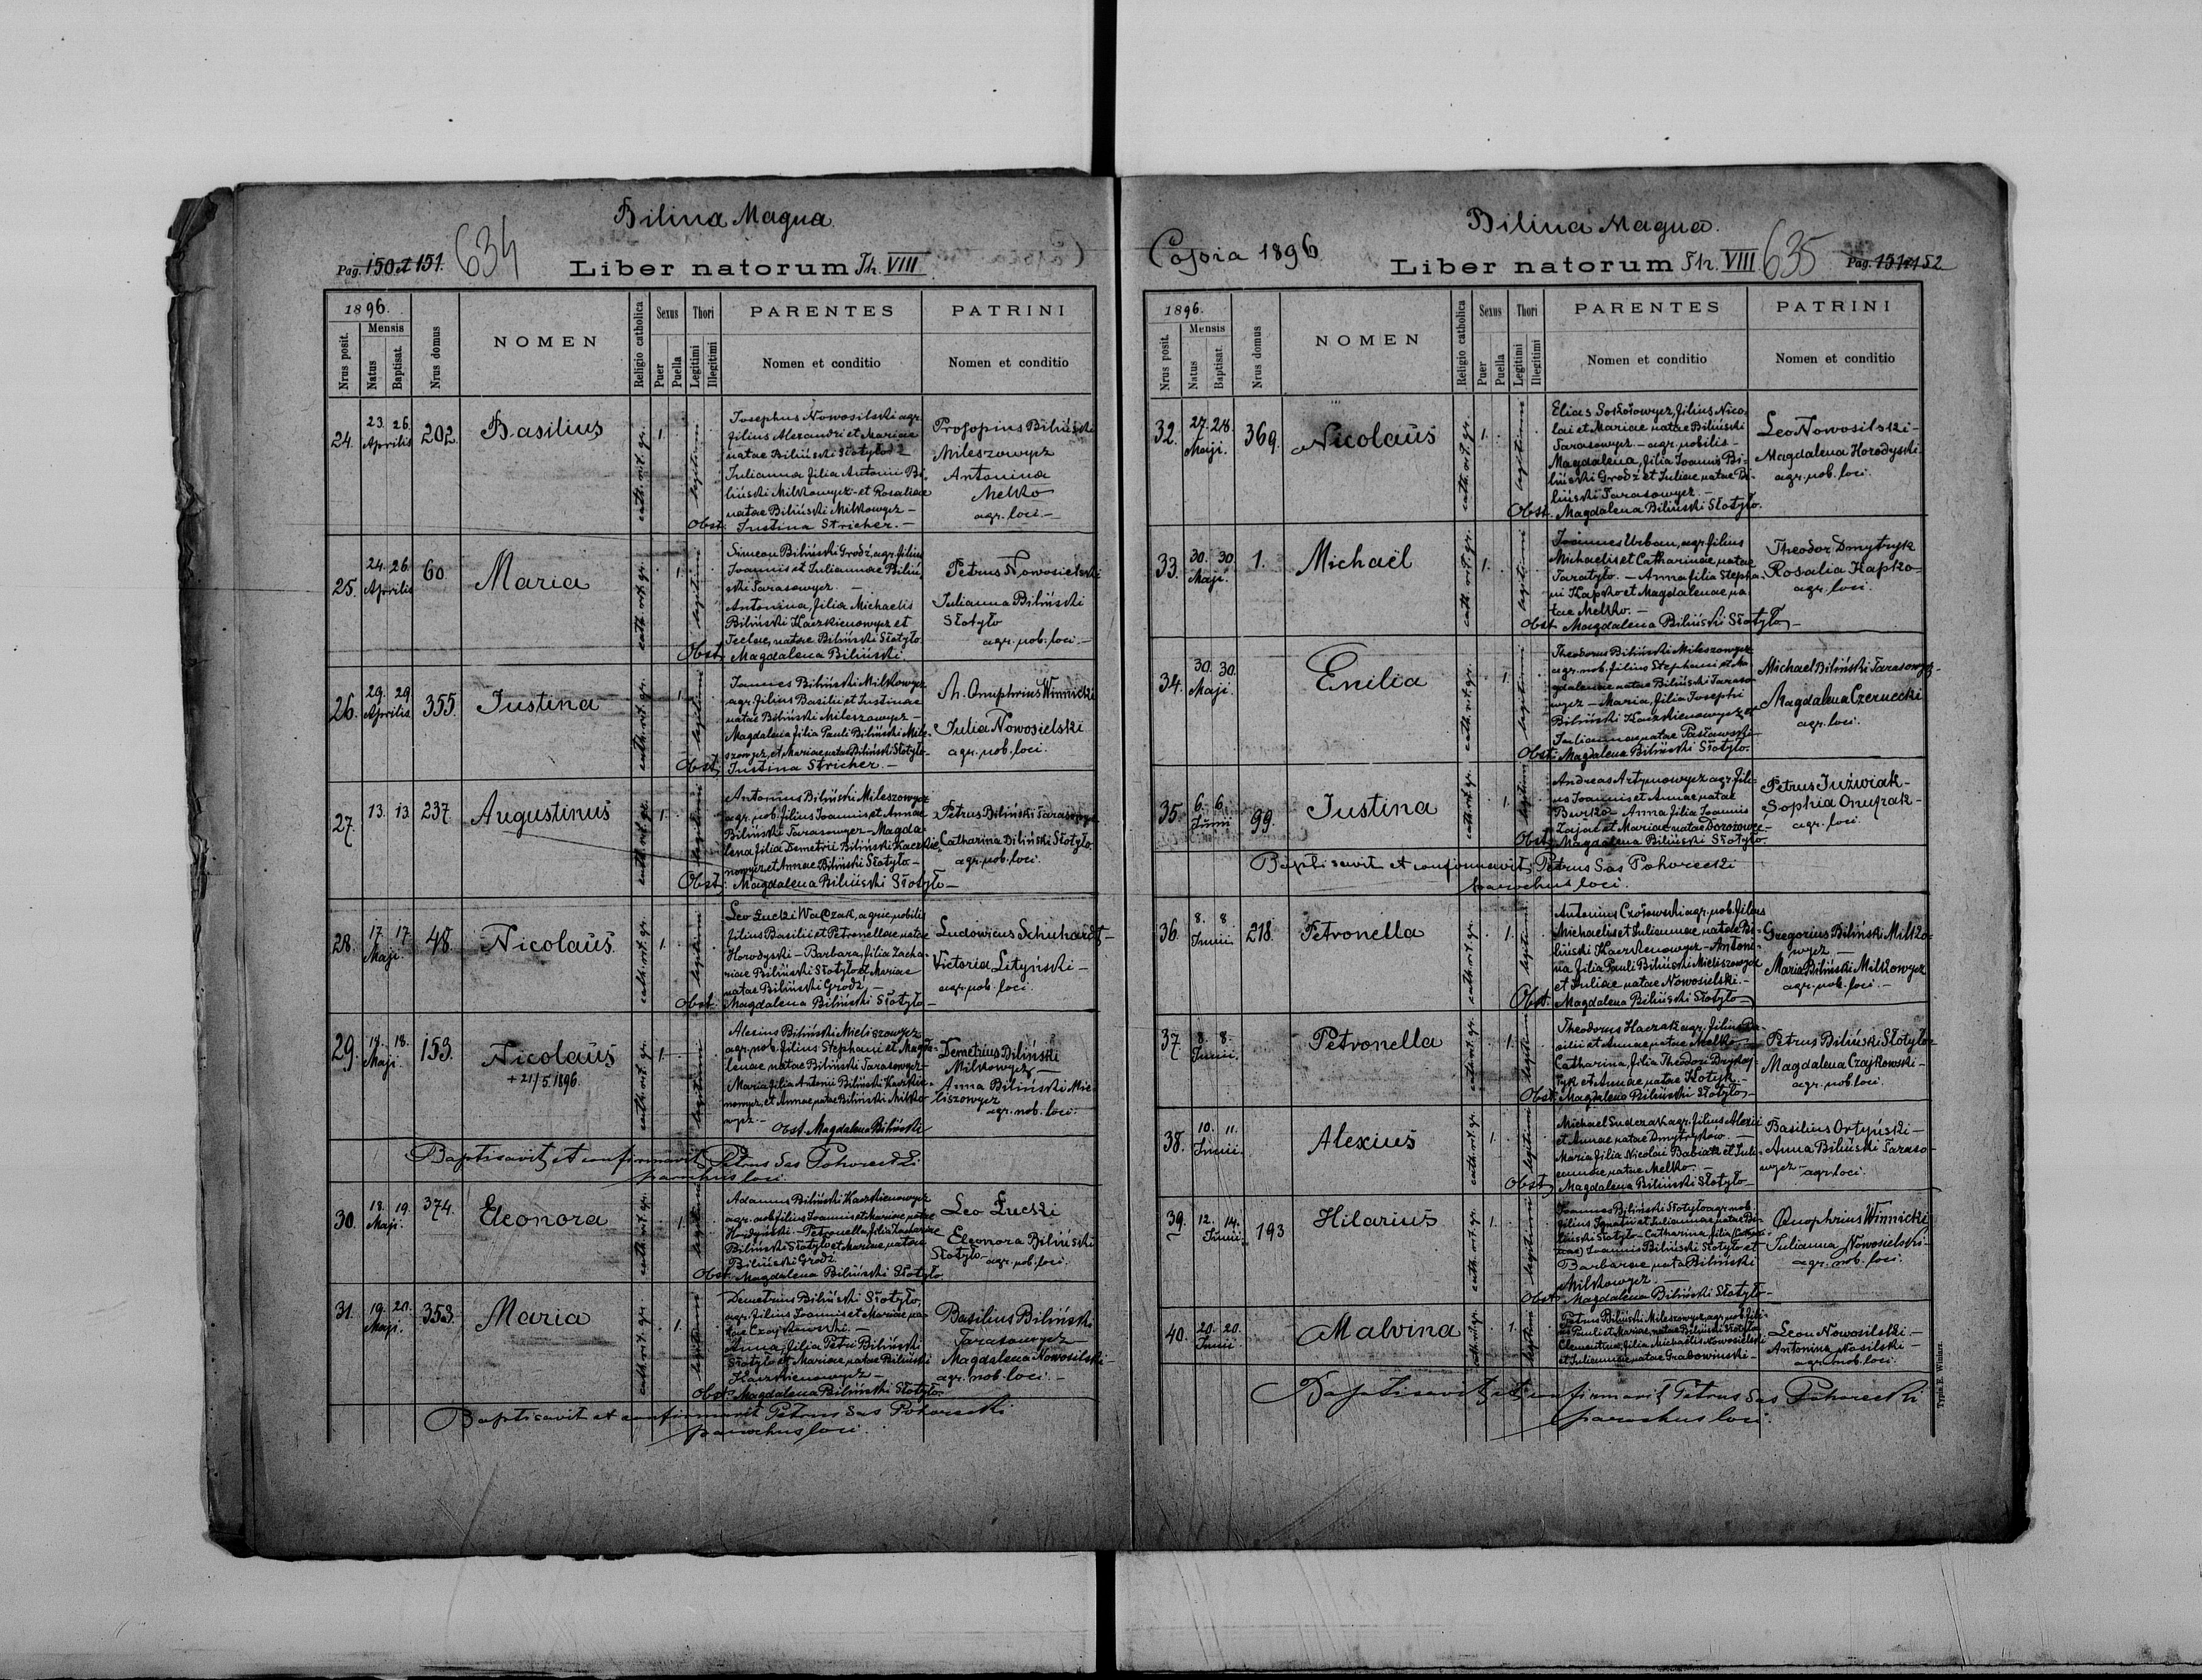 Bilina Magna
Pag. 150 et 151.
634
Liber natorum Th. VIII
1896.
Nrus posit.
Mensis
Natus
Baptisat.
Nrus domus
NOMEN
Religio catholica
Sexus
Puer
Puella
Thori
Legitimi
Illegitimi
PARENTES
Nomen et conditio
PATRINI
Nomen et conditio
24.
23. 26.
Aprilis
202.
Basilius
cath. rit. gr.
1.
legitimi
Josephus Nowosilski agr.
filius Alexandri et Mariae
natae Biliński Słotyło
Julianna filia Antonii Bi-
liński Milkowycz et Rosaliae
natae Biliński Milkowycz -
Obst. Justina Stricher. -
Prosopius Biliński
Mileszowycz
Antonina
Melko
agr. loci -
25.
24. 26.
Aprilis
60.
Maria
cath. rit. gr.
1.
legitimi
Simeon Biliński Grodź, agr. filius
Joannis et Juliannae Biliń
ski Tarasowycz -
Antonina, filia Michaelis
Biliński Kaczkienowycz et
Teclae, natae Biliński Słotyło
Obst. Magdalena Biliński
Petrus Nowosielski
Julianna Biliński
Słotyło
agr. nob. loci. -
26.
29. 29
Aprilis
355.
Justina
cath. rit. gr.
1.
legitimi
Joannes Biliński Milkowycz
agr. filius Basilii et Justinae
natae Biliński Mileszowycz -
Magdalena filia Pauli Biliński Mile-
szowycz, et Mariae natae Biliński Słotyło -
Obst. Justina Stricher. -
Onuphrius Winnicki
Julia Nowosielski
agr. nob. loci.
27.
13. 13.
237
Augustinus
cath. rit. gr.
1.
legitimi
Antonius Biliński Mileszowycz
agr. nob. filius Joannis et Annae
Biliński Tarasowycz - Magda-
lena filia Demetrii Biliński Kaczkie-
nowycz et Annae Biliński Słotyło -
Obst. Magdalena Biliński Słotyło -
Petrus Biliński Tarasowycz
Catharina Biliński Słotyło
agr. nob. loci.
28.
17. 17.
Maji.
48.
Nicolaus
cath. rit. gr.
1.
legitimi
Leo Łucki Walczak, agric. nobilis
filius Basilii et Petronellae natae
Horodyski - Barbara, filia Zacha-
riae Biliński Słotyło et Mariae
natae Biliński Grodź, -
Obst. Magdalena Biliński Słotyło -
Ludowicus Schuhardt -
Victoria Lityński -
agr. nob. loci.
29.
17. 18.
Maji.
153.
Nicolaus
+ 21/5 1896
cath. rit. gr.
1.
legitimi
Alexius Biliński Mieliszowycz
agr. nob. filius Stephani et Magda-
lenae natae Biliński Tarasowycz -
Maria filia Antonii Biliński Kaczkie-
nowycz, et Annae, natae Biliński Milko-
wycz. - Obst. Magdalena Biliński
Demetrius Biliński
Milkowycz -
Anna Biliński Mie-
liszowycz
agr. nob. loci.
Baptisavit et confirmavit Petrus Sas Pohorecki
parochus loci.
30.
18. 19.
Maji.
374.
Eleonora
cath. rit. gr.
1.
legitimi
Adamus Biliński Kaczkienowycz
agr. nob. filius Joannis et Mariae natae
Petronella, filia Zachariae
Biliński Słotyło et Mariae, natae
Biliński Grodź
Obst. Magdalena Biliński Słotyło
Leo Łucki
Eleonora Biliński
Słotyło - agr. nob. loci.
31.
19. 20.
Maji.
353.
Maria
cath. rit. gr.
1.
legitimi
Demetrius Biliński Słotyło,
agr. filius Joannis et Mariae na-
tae Czajkowski. -
Anna, filia Petri Biliński
Słotyło et Mariae, natae Biliński
Kaczkienowycz -
Obst. Magdalena Biliński Słotyło.
Basilius Biliński
Tarasowycz -
Magdalena Nowosilski -
agr. nob. loci. -
Baptisavit et confirmavit Petrus Sas Pohorecki
parochus loci.
Bilina Magna.
Copia 1896
Liber natorum Th. VIII
635
Pag. 151 et 152
1896.
Nrus posit.
Mensis
Natus
Baptisat.
Nrus domus
NOMEN
Religio catholica
Sexus
Puer
Puella
Thori
Legitimi
Illegitimi
PARENTES
Nomen et conditio
PATRINI
Nomen et conditio
32.
27. 28.
Maji.
369.
Nicolaus
cath. rit. gr.
1.
legitimi
Elias Sokołowycz, filius Nico-
lai et Mariae natae Biliński
Tarasowycz - agr. nobilis -
Magdalena, filia Joannis Bi-
liński Grodź et Juliae natae Bi-
liński Tarasowycz. -
Obst. Magdalena Biliński Słotyło.
Leo Nowosilski -
Magdalena Horodyski.
agr. nob. loci.
33.
30. 30
Maji.
1.
Michaël
cath. rit. gr.
1.
legitimi
Joannes Urban, agr. filius
Michaelis et Catharinae, natae
Taratyło. - Anna filia Stepha-
ni Hapko et Magdalenae na-
tae Melko. -
Obst. Magdalena Biliński Słotyło -
Theodor Dmytryk
Rosalia Hapko
agr. loci.
34.
30. 30.
Maji.
Emilia
cath. rit. gr.
1.
legitimi
Theodorus Biliński Mileszowycz
agr. nob. filius Stephani et Ma-
gdalenae natae Biliński Taraso-
wycz - Maria, filia Josephi
Biliński Kaczkienowycz et
Juliannae natae Pasławski -
Obst. Magdalena Biliński Słotyło.
Michael Biliński Tarasowycz -
Magdalena Czernecki
agr. loci.
35.
6. 6.
Junii
99.
Justina
cath. rit. gr.
1.
legitimi
Andreas Artymowycz agr. fili-
us Joannis et Annae natae
Burko - Anna filia Joannis
Zajac et Mariae natae
Obst. Magdalena Biliński Słotyło.
Petrus Juźwiak -
Sophia Onufrak -
agr. loci.
Baptisavit et confirmavit Petrus Sas Pohorecki
parochus loci.
36.
8. 8
Junii
218.
Petronella
cath. rit. gr.
1.
legitimi
Antonius Czołowski agr. nob. filius
Michaelis et Juliannae, natae Bi-
liński Kaczkenowycz - Antoni-
na, filia Pauli Biliński Mieliszowycz
et Juliae natae Nowosielski. -
Obst. Magdalena Biliński Słotyło -
Gregorius Biliński Milko-
wycz -
Maria Biliński Milkowycz
agr. nob. loci. -
37.
8. 8.
Junii.
Petronella
cath. rit. gr.
1.
legitimi
Theodorus Haczak agr. filius Ba-
silii et Annae natae Melko
Catharina, filia Theodori
et Annae natae Kotyk -
Obst. Magdalena Biliński Słotyło -
Petrus Biliński Słotyło
Magdalena Czajkowski -
agr. nob. loci.
38.
10. 11.
Junii.
Alexius
cath. rit. gr.
1.
legitimi
Michael Sudczak agr. filius Alexii
et Annae natae Dmytryków. -
Maria filia Nicolai Babiak et Juli-
annae natae Melko. -
Obst. Magdalena Biliński Słotyło -
Basilius Ortyński -
Anna Biliński Taraso-
wycz - agr. loci.
39.
12. 14.
Junii.
193
Hilarius
cath. rit. gr.
1.
legitimi
Joannes Biliński Słotyło agr. nob.
filius Ignatii et Juliannae, natae Bi-
liński Słotyło - Catharina, filia
Joannis Biliński Słotyło et
Barbarae, nata Biliński
Milkowycz. -
Obst. Magdalena Biliński Słotyło -
Onophrius Winnicki
Julianna Nowosielski -
agr. nob. loci.
40.
20. 20.
Junii.
Malvina
cath. rit. gr.
1.
legitimi
Petrus Biliński Mileszowycz, agr. nob. fili-
us Pauli et Mariae, natae Biliński Słotyło
Clementina, filia Michaëlis Nowosielski
et Juliannae, natae Grabowinski -
Leon Nowosilski -
Antonina Nosilski -
agr. nob. loci.
Baptisavit et confirmavit Petrus Sas Pohorecki
parochus loci.
Typis E. Winiarz.